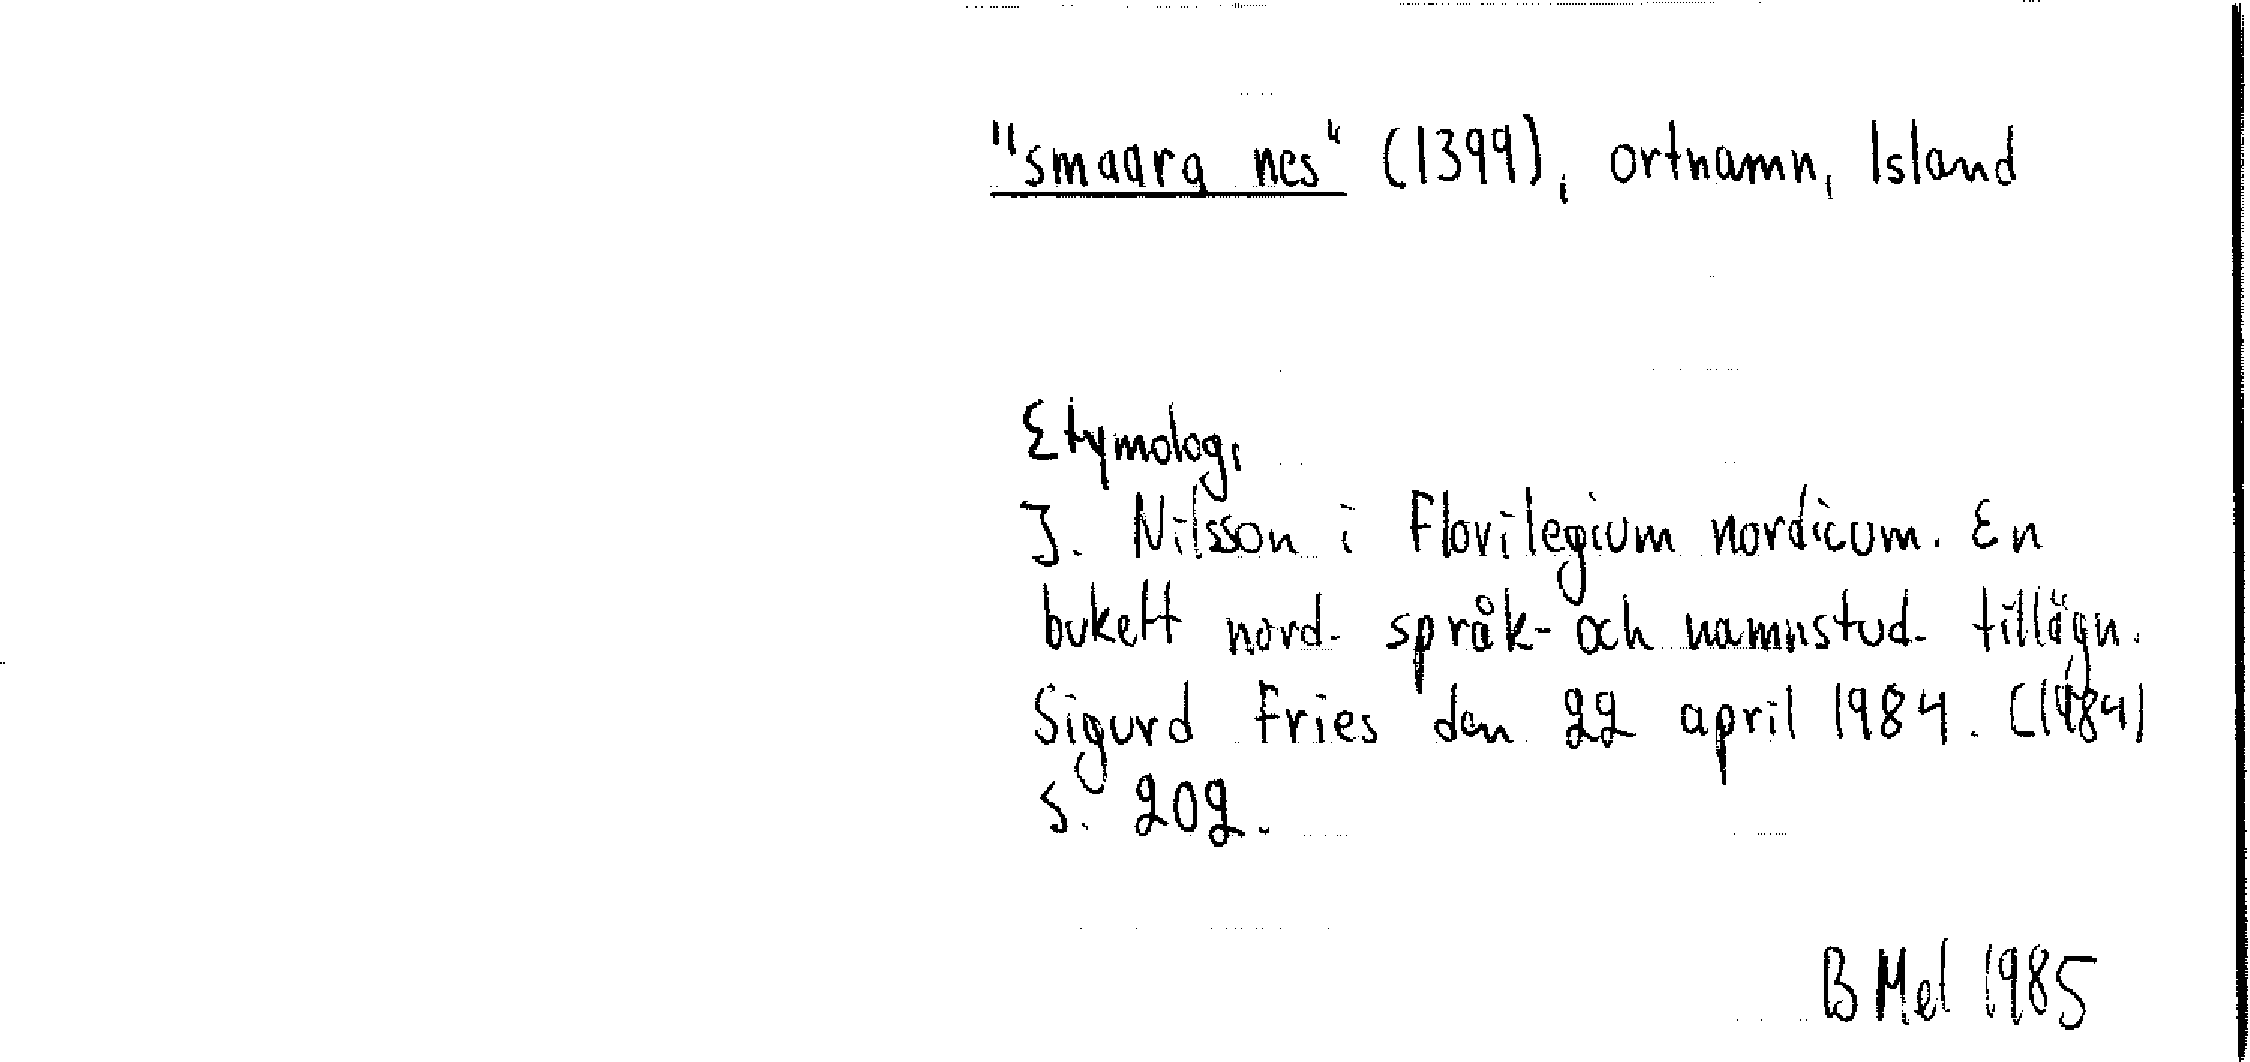 "smaara nes" (1399), ortnamn, Island
Etymologi
J. Nilsson i Florilegium nordicum. En
bukett nord. språk- och namnstud. tillägn.
Sigurd Fries den 22 april 1984. (1984)
s. 202.
B Mel 1985